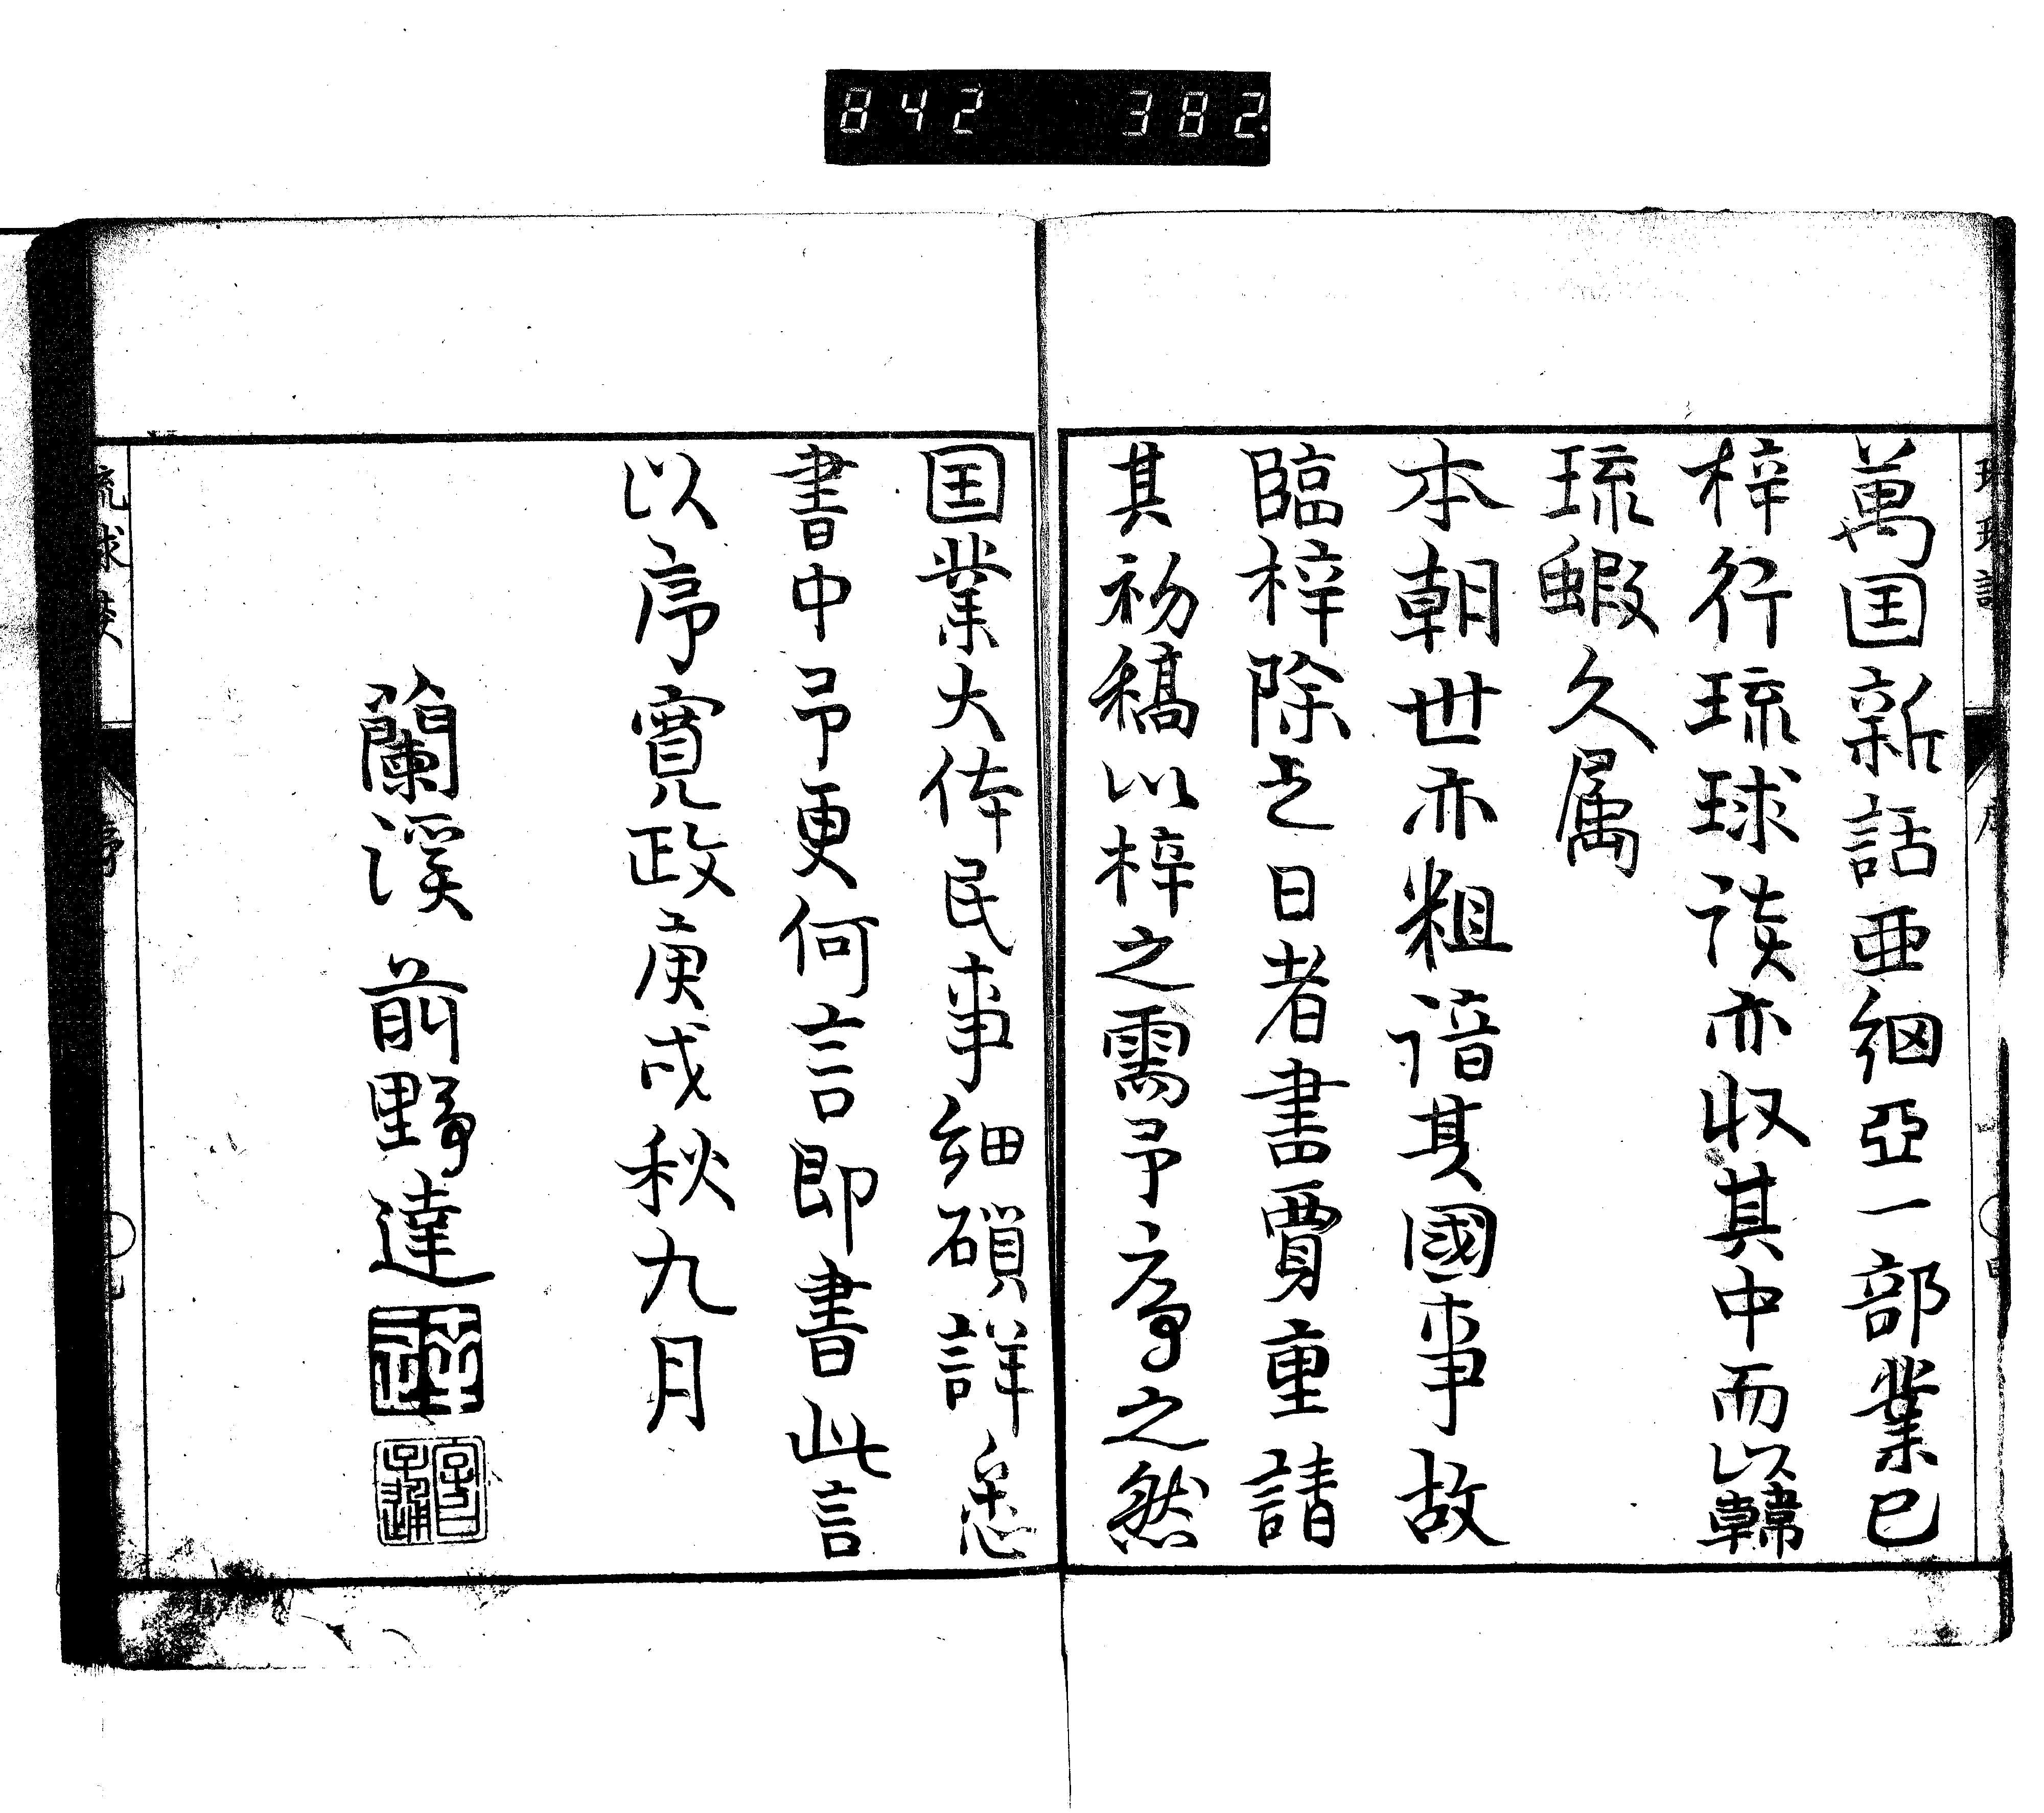 842 382
萬囯新話亜細亞一部業已
梓行琉球談亦収其中而以韓
琉蝦久属
本朝世亦粗諳其國事故
臨梓除之日者書賈重請
其初稿以梓之需予序之然
囯業大体民事細碩詳悉
書中予更何言即書此言
以序寛政庚戌秋九月
蘭溪 前野達
琉球談
序